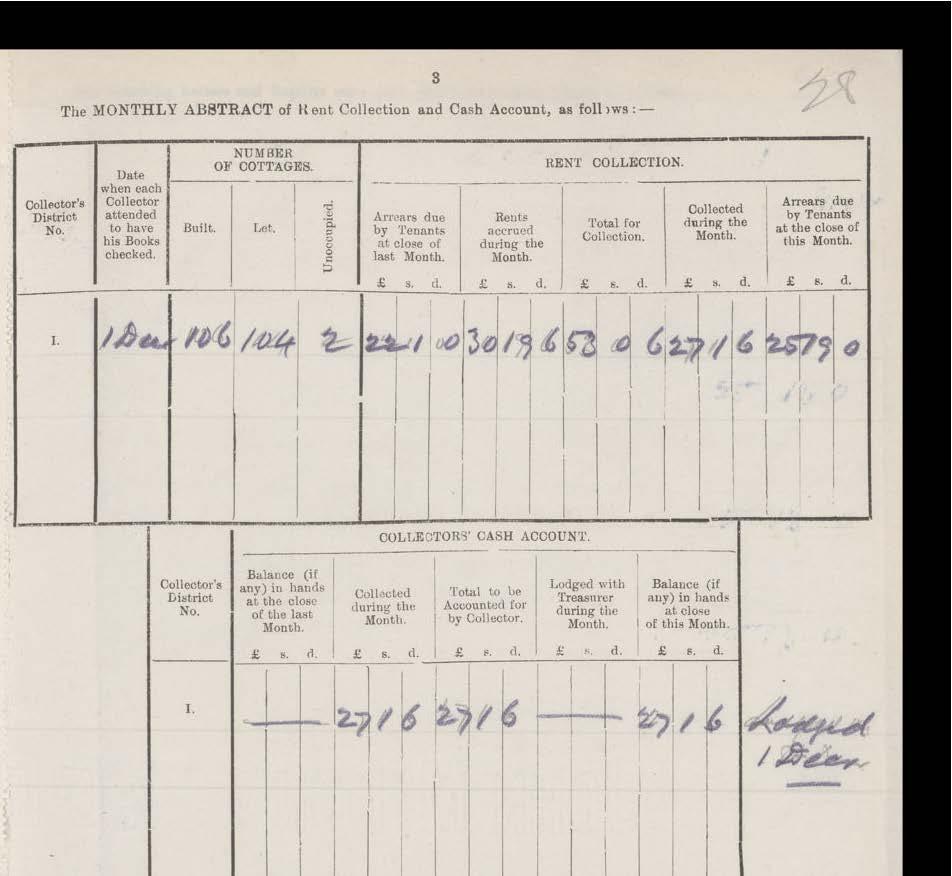 3
28
The MONTHLY ABSTRACT of Rent Collection and Cash Account, as follows:—
Collector's District No.
Date when each Collector attended to have his Books checked.
NUMBER OF COTTAGES.
Built.
Let.
Unoccupied.
RENT COLLECTION.
Arrears due by Tenants at close of last Month.
Rents accrued during the Month.
Total for Collection.
Collected during the Month.
Arrears due by Tenants at the close of this Month.
£ s. d. £ s. d. £ s. d. £ s. d. £ s. d.
I. 1 Dec 106 104 2 22 1 0 30 19 6 53 0 6 27 1 6 25 19 0
COLLECTORS' CASH ACCOUNT.
Collector's District No.
Balance (if any) in hands at the close of the last Month.
Collected during the Month.
Total to be Accounted for by Collector.
Lodged with Treasurer during the Month.
Balance (if any) in hands at close of this Month.
£ s. d. £ s. d. £ s. d. £ s. d. £ s. d.
I. — 27 1 6 27 1 6 — 27 1 6
Lodged
1 Decr